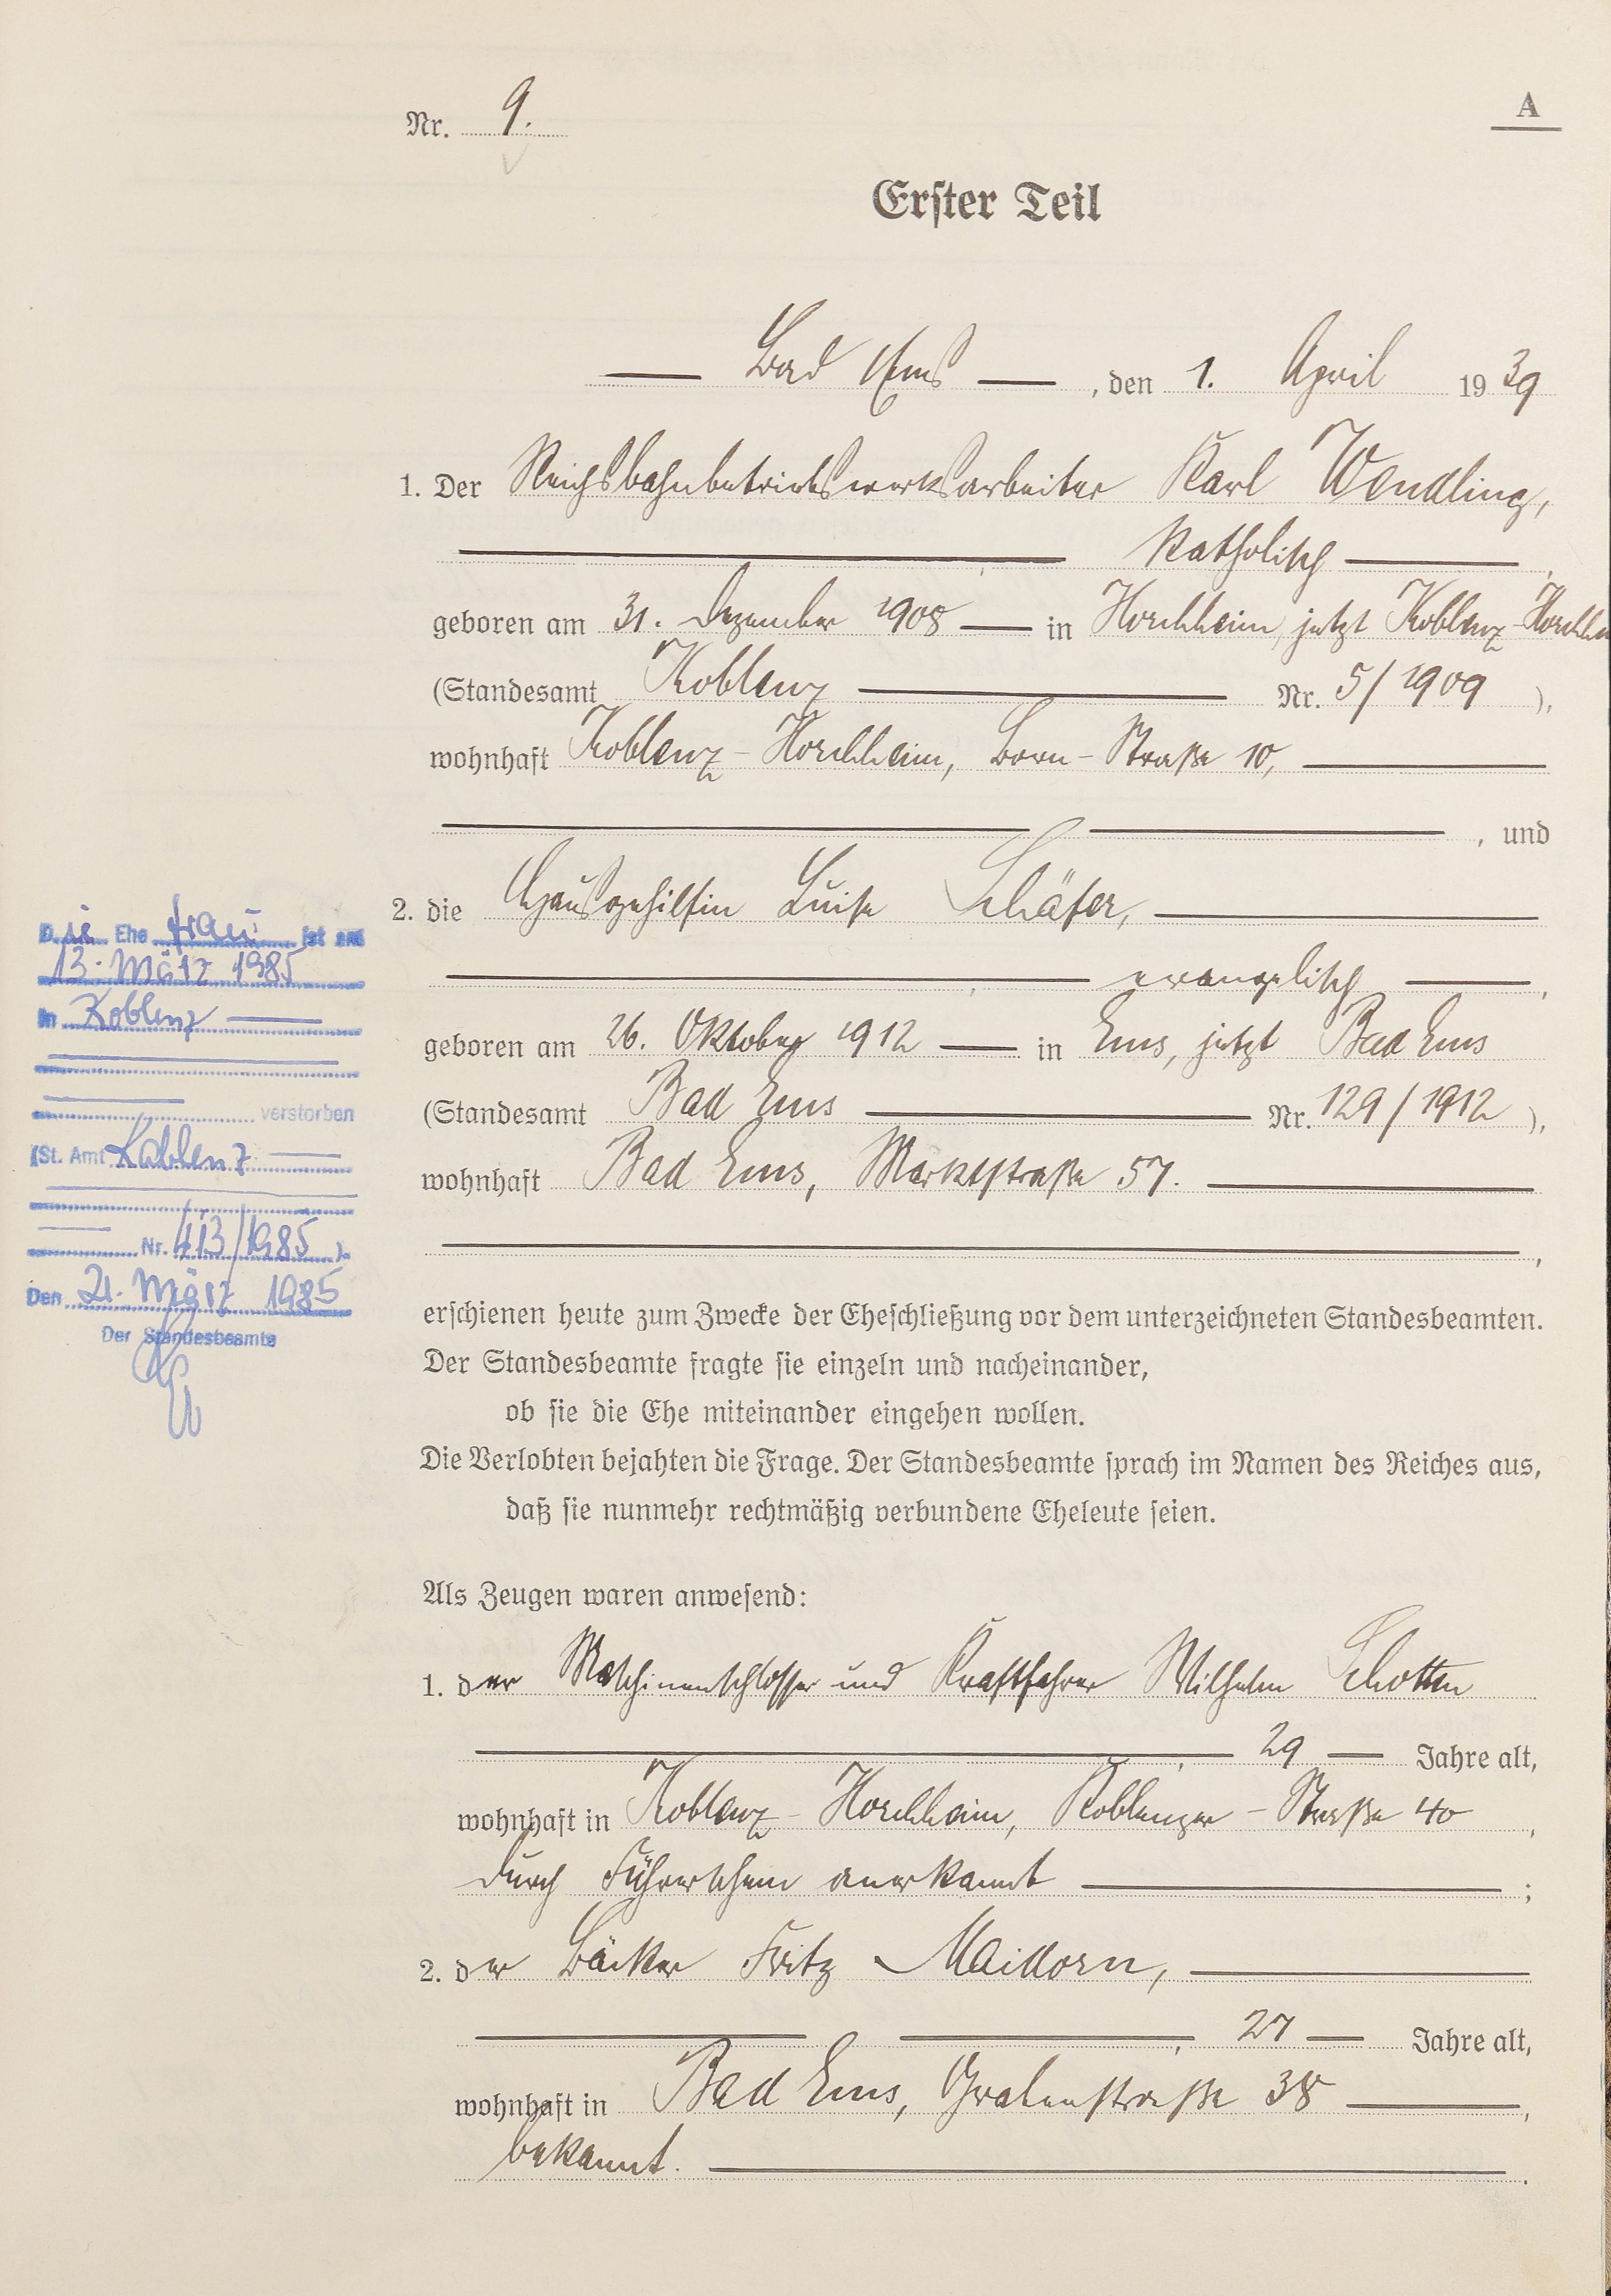 Nr. 9.
A
Erster Teil
Bad Ems, den 1. April 1939
1. Der Reichsbahnbetriebswerksarbeiter Karl Wendling,
katholisch,
geboren am 31. Dezember 1908 in Horchheim, jetzt Koblenz-Horchheim
(Standesamt Koblenz Nr. 5/1909),
wohnhaft Koblenz-Horchheim, Born-Straße 10,
, und
2. die Hausgehilfin Luise Schäfer,
evangelisch,
geboren am 26. Oktober 1912 in Ems, jetzt Bad Ems
(Standesamt Bad Ems Nr. 129/1912),
wohnhaft Bad Ems, Marktstraße 57.
,
erschienen heute zum Zwecke der Eheschließung vor dem unterzeichneten Standesbeamten.
Der Standesbeamte fragte sie einzeln und nacheinander,
ob sie die Ehe miteinander eingehen wollen.
Die Verlobten bejahten die Frage. Der Standesbeamte sprach im Namen des Reiches aus,
daß sie nunmehr rechtmäßig verbundene Eheleute seien.
Als Zeugen waren anwesend:
1. der Maschinenschlosser und Kraftfahrer Wilhelm Schotten
, 29 Jahre alt,
wohnhaft in Koblenz-Horchheim, Koblenzer-Straße 40,
durch Führerschein anerkannt;
2. der Bäcker Fritz Maidorn,
, 27 Jahre alt,
wohnhaft in Bad Ems, Grabenstraße 38,
bekannt.
Die Ehefrau ist am
13. März 1985
in Koblenz
verstorben
(St. Amt Koblenz
Nr. 413/1985).
Den 21. März 1985
Der Standesbeamte